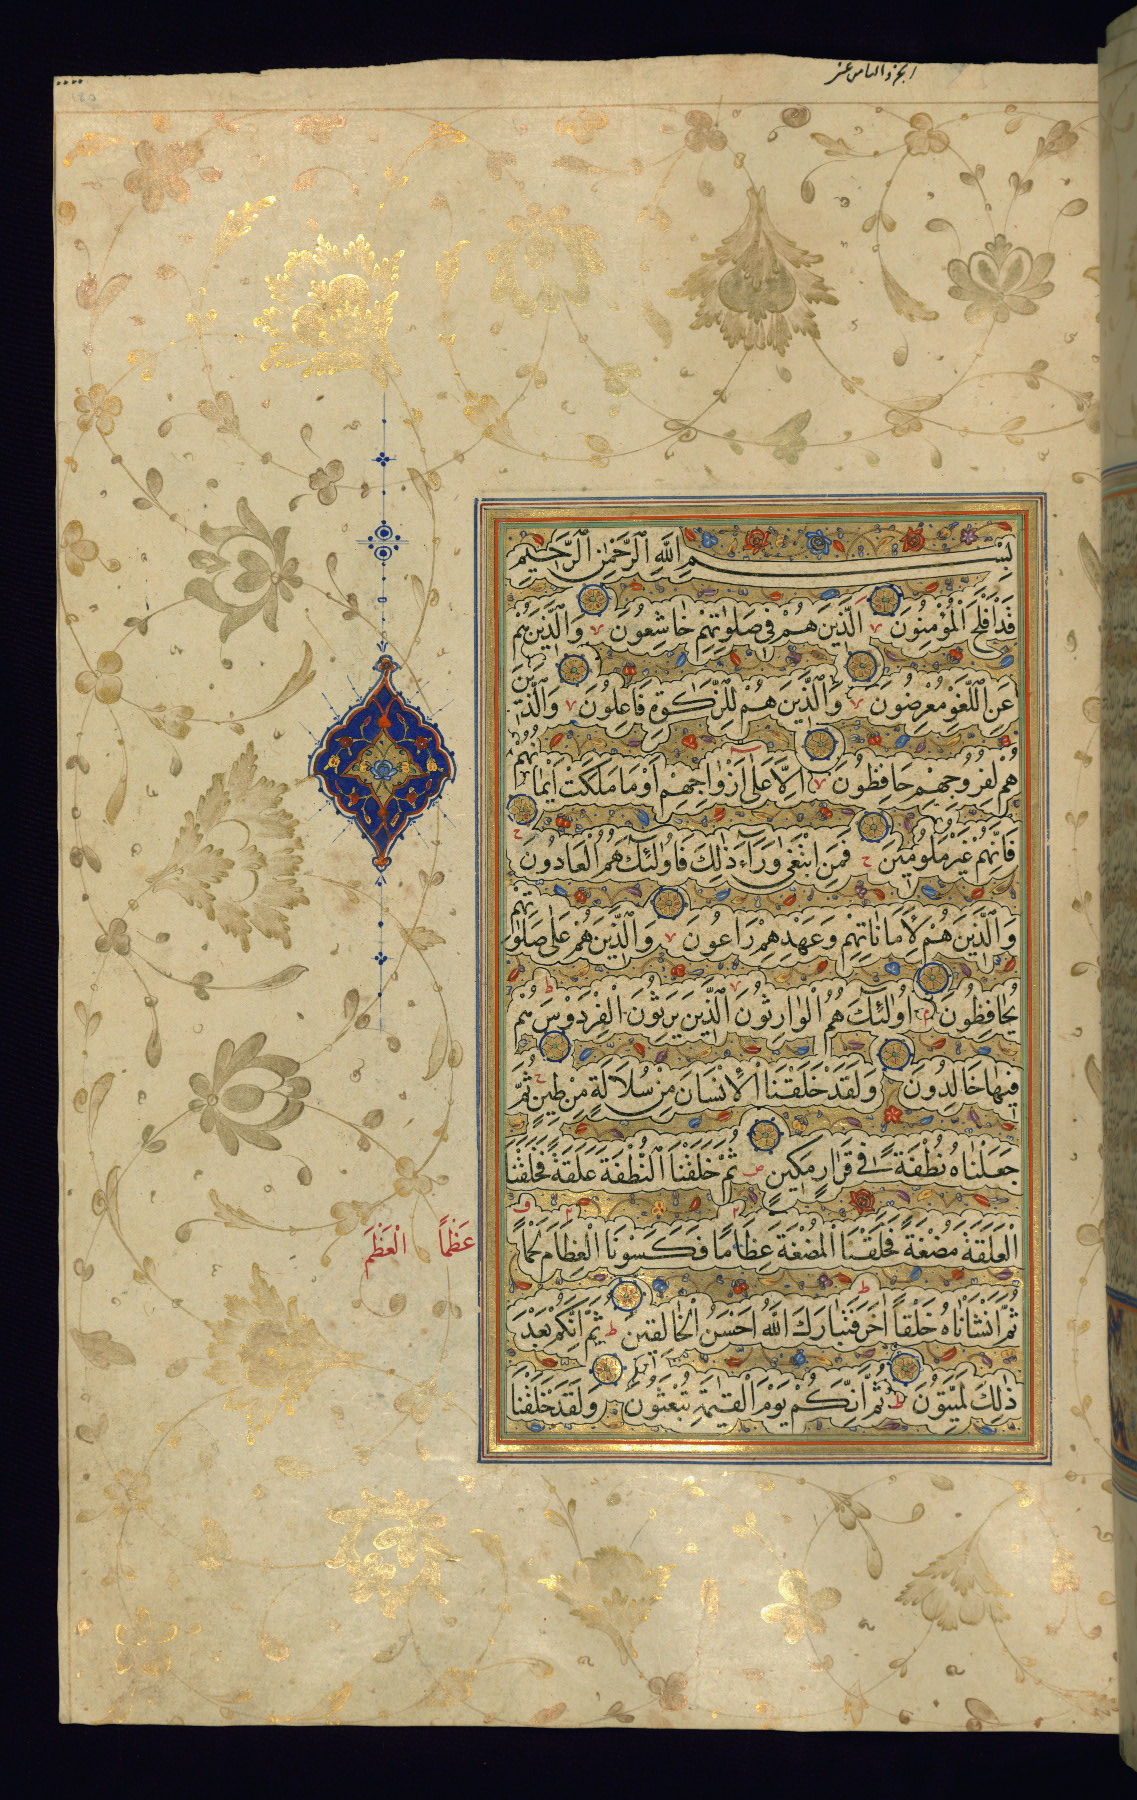 الجزء الثامن عشر
بِسْمِ اللَّهِ الرَّحْمٰنِ الرَّحِيمِ
قَدْ اَفْلَحَ الْمُؤْمِنُونَ الَّذِينَ هُمْ فِي صَلٰوتِهِمْ خَاشِعُونَ وَالَّذِينَ هُمْ
عَنِ اللَّغْوِ مُعْرِضُونَ وَالَّذِينَ هُمْ لِلزَّكٰوةِ فَاعِلُونَ وَالَّذِينَ
هُمْ لِفُرُوجِهِمْ حَافِظُونَ اِلَّا عَلٰى اَزْوَاجِهِمْ اَوْ مَا مَلَكَتْ اَيْمَانُهُمْ
فَاِنَّهُمْ غَيْرُ مَلُومِينَ فَمَنِ ابْتَغٰى وَرَاءَ ذٰلِكَ فَاُولٰئِكَ هُمُ الْعَادُونَ
وَالَّذِينَ هُمْ لِاَمَانَاتِهِمْ وَعَهْدِهِمْ رَاعُونَ وَالَّذِينَ هُمْ عَلٰى صَلَوَاتِهِمْ
يُحَافِظُونَ اُولٰئِكَ هُمُ الْوَارِثُونَ الَّذِينَ يَرِثُونَ الْفِرْدَوْسَ هُمْ
فِيهَا خَالِدُونَ وَلَقَدْ خَلَقْنَا الْاِنْسَانَ مِنْ سُلَالَةٍ مِنْ طِينٍ ثُمَّ
جَعَلْنَاهُ نُطْفَةً فِي قَرَارٍ مَكِينٍ ثُمَّ خَلَقْنَا النُّطْفَةَ عَلَقَةً فَخَلَقْنَا
الْعَلَقَةَ مُضْغَةً فَخَلَقْنَا الْمُضْغَةَ عِظَامًا فَكَسَوْنَا الْعِظَامَ لَحْمًا
عَظْمًا الْعَظْمَ
ثُمَّ اَنْشَاْنَاهُ خَلْقًا اٰخَرَ فَتَبَارَكَ اللَّهُ اَحْسَنُ الْخَالِقِينَ ثُمَّ اِنَّكُمْ بَعْدَ
ذٰلِكَ لَمَيِّتُونَ ثُمَّ اِنَّكُمْ يَوْمَ الْقِيٰمَةِ تُبْعَثُونَ وَلَقَدْ خَلَقْنَا